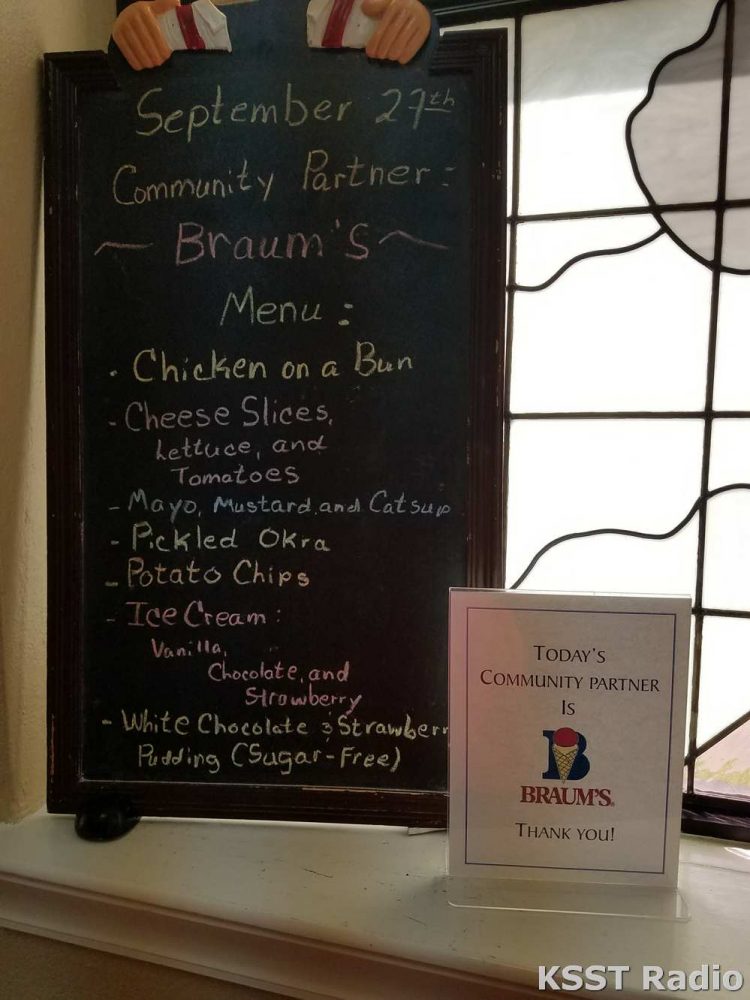 September 27th
Community Partner:
~ Braum's ~
Menu:
· Chicken on a Bun
- Cheese Slices,
Lettuce, and
Tomatoes
- Mayo, Mustard, and Catsup
- Pickled Okra
- Potato Chips
- Ice Cream:
Vanilla,
Chocolate, and
Strawberry
- White Chocolate & Strawberr
Pudding (Sugar-Free)
TODAY'S
COMMUNITY PARTNER
IS
B
BRAUM'S®
THANK YOU!
KSST Radio